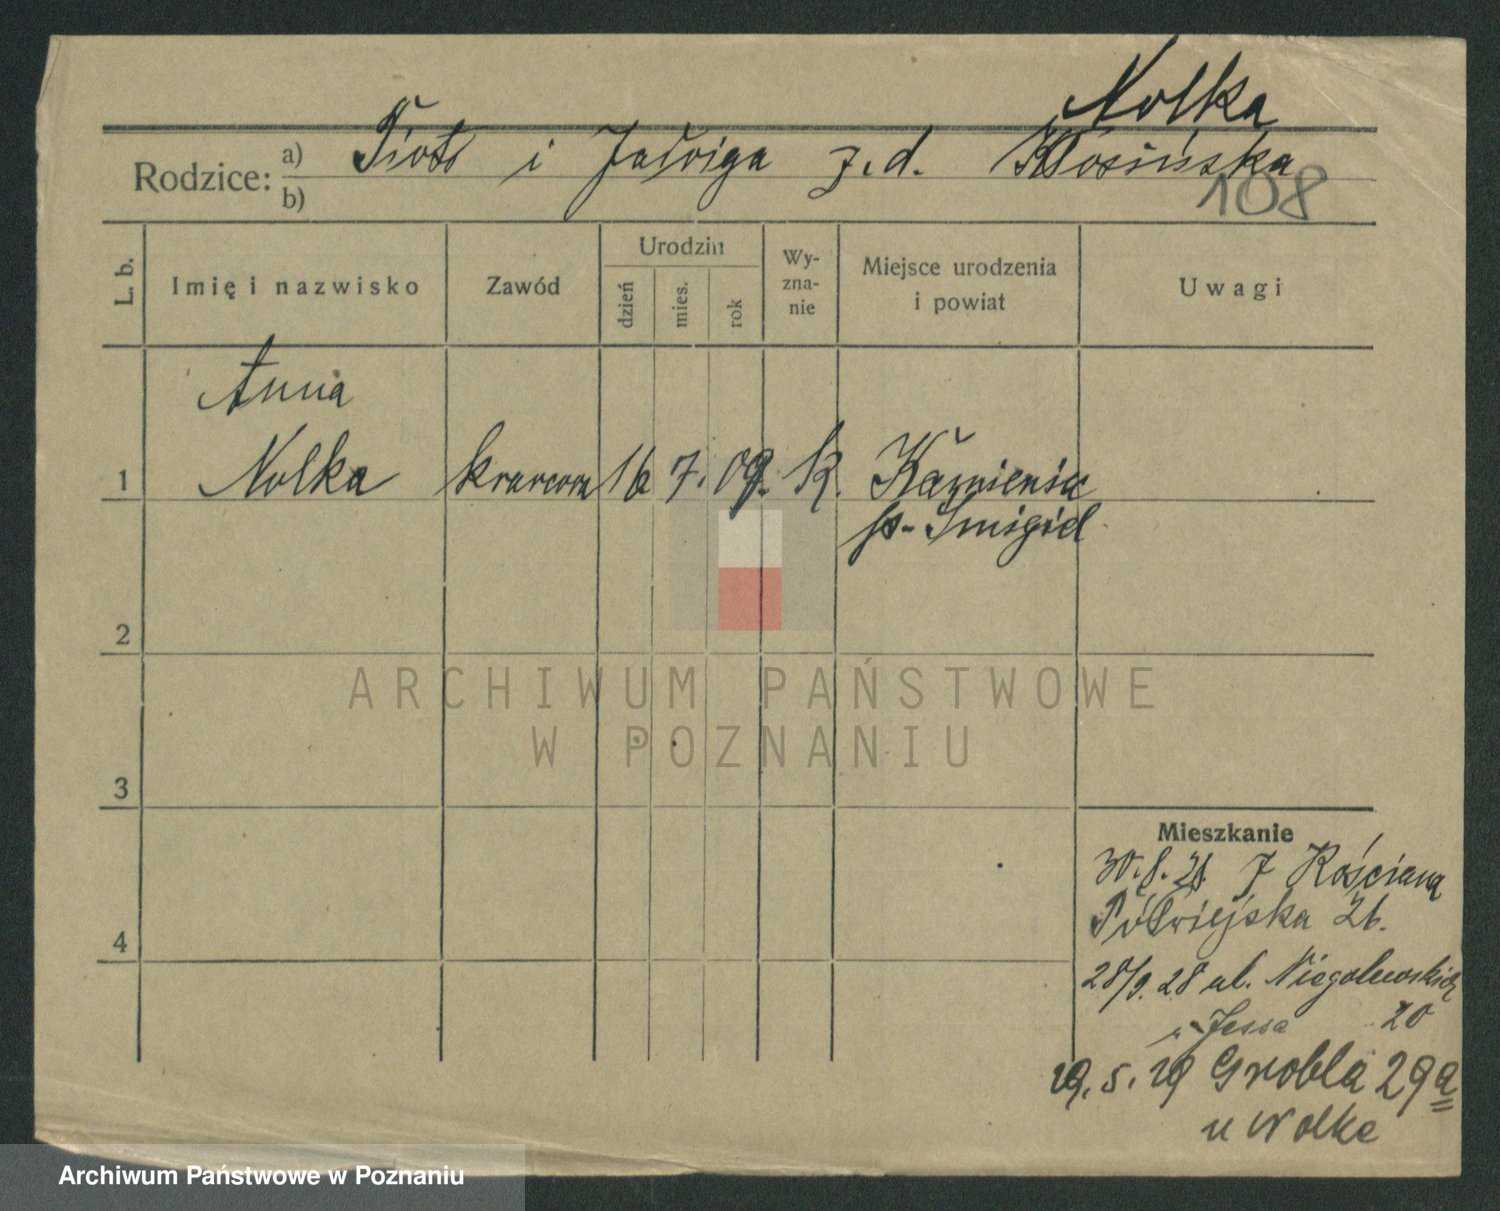 Nolka
Rodzice: a) Piotr i Jadwiga z.d. Kłosińska
b)
108
L. b.
Imię i nazwisko
Zawód
Urodzin
dzień
mies.
rok
Wy-
zna-
nie
Miejsce urodzenia
i powiat
Uwagi
Anna
1 Nolka krawcowa 16 7. 09. K. Kamieniec
p. Śmigiel
2
ARCHIWUM PAŃSTWOWE
W POZNANIU
3
Mieszkanie
30.8.28 z Kościana
Półwiejska 26.
4
28/9. 28 ul. Niegolewskich
20
u Jessa
29.5.29 Grobla 29a
u Nolke
Archiwum Państwowe w Poznaniu